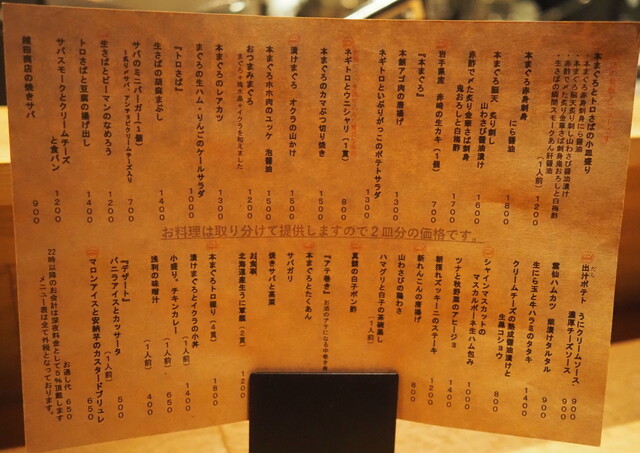 本まぐろとトロさばの小皿盛り
・本まぐろ赤身刺身にら醤油
・本まぐろ脳天 炙り刺し山わさび醤油漬け
・赤酢で〆た炙り金華さば刺身鬼おろしと白梅酢
・生さばの瞬間スモークあん肝醤油
(1人前) 1200
本まぐろ赤身刺身
にら醤油
1800
本まぐろ脳天 炙り刺し
山わさび醤油漬け
1600
赤酢で〆た炙り金華さば刺身
鬼おろしと白梅酢
1700
岩手県産 赤崎の生カキ(1個)
700
『本まぐろ』
本鮪アゴ肉の唐揚げ
1300
ネギトロといぶりがっこのポテトサラダ
1300
ネギトロとウニシャリ(1貫)
800
漬けまぐろ オクラの山かけ
1500
本まぐろのカマぶつ切り焼き
1300
本まぐろホホ肉のユッケ 泡醤油
1500
おつまみまぐろ
1200
本まぐろのレアカツ
1300
まぐろの生ハム・りんごのケールサラダ
1000
『トロさば』
生さばの胡麻まぶし
1400
サバのミニバーガー(1個)
700
生さばとピーマンのなめろう
1200
トロさばと豆腐の揚げ出し
1400
サバスモークとクリームチーズ
と食パン
1200
越田商店の焼きサバ
900
お料理は取り分けて提供しますので2皿分の価格です。
出汁ポテト うにクリームソース
900
濃厚チーズソース
900
雲仙ハムカツ 柴漬けタルタル
900
生にら玉と牛ハラミのタタキ
1400
クリームチーズの熟成醤油漬けと
生黒コショウ
900
シャインマスカットの
マスカルポーネ生ハム包み
1000
ツナと秋野菜のアヒージョ
1400
朝採れズッキーニのステーキ
1200
新れんこんの唐揚げ
800
山わさびの鶏わさ
ハマグリと白子の茶碗蒸し
(1人前)
真鱈の白子ポン酢
『アテ巻き』
本まぐろとたくあん
サバガリ
焼きサバと高菜
お食事
北海道産生うに軍艦(2貫)
1200
本まぐろトロ握り(4貫)
1800
漬けまぐろとイクラの小丼
(1人前) 1400
小盛り。チキンカレー
(1人前) 650
浅利の味噌汁
(1人前) 400
『デザート』
バニラアイスとカッサータ
(1人前) 500
マロンアイスと安納芋のカスタードブリュレ
(1人前) 650
お通し代 650
22時以降のお会計は深夜料金として5%頂戴します
メニュー表は全て外税となっております。